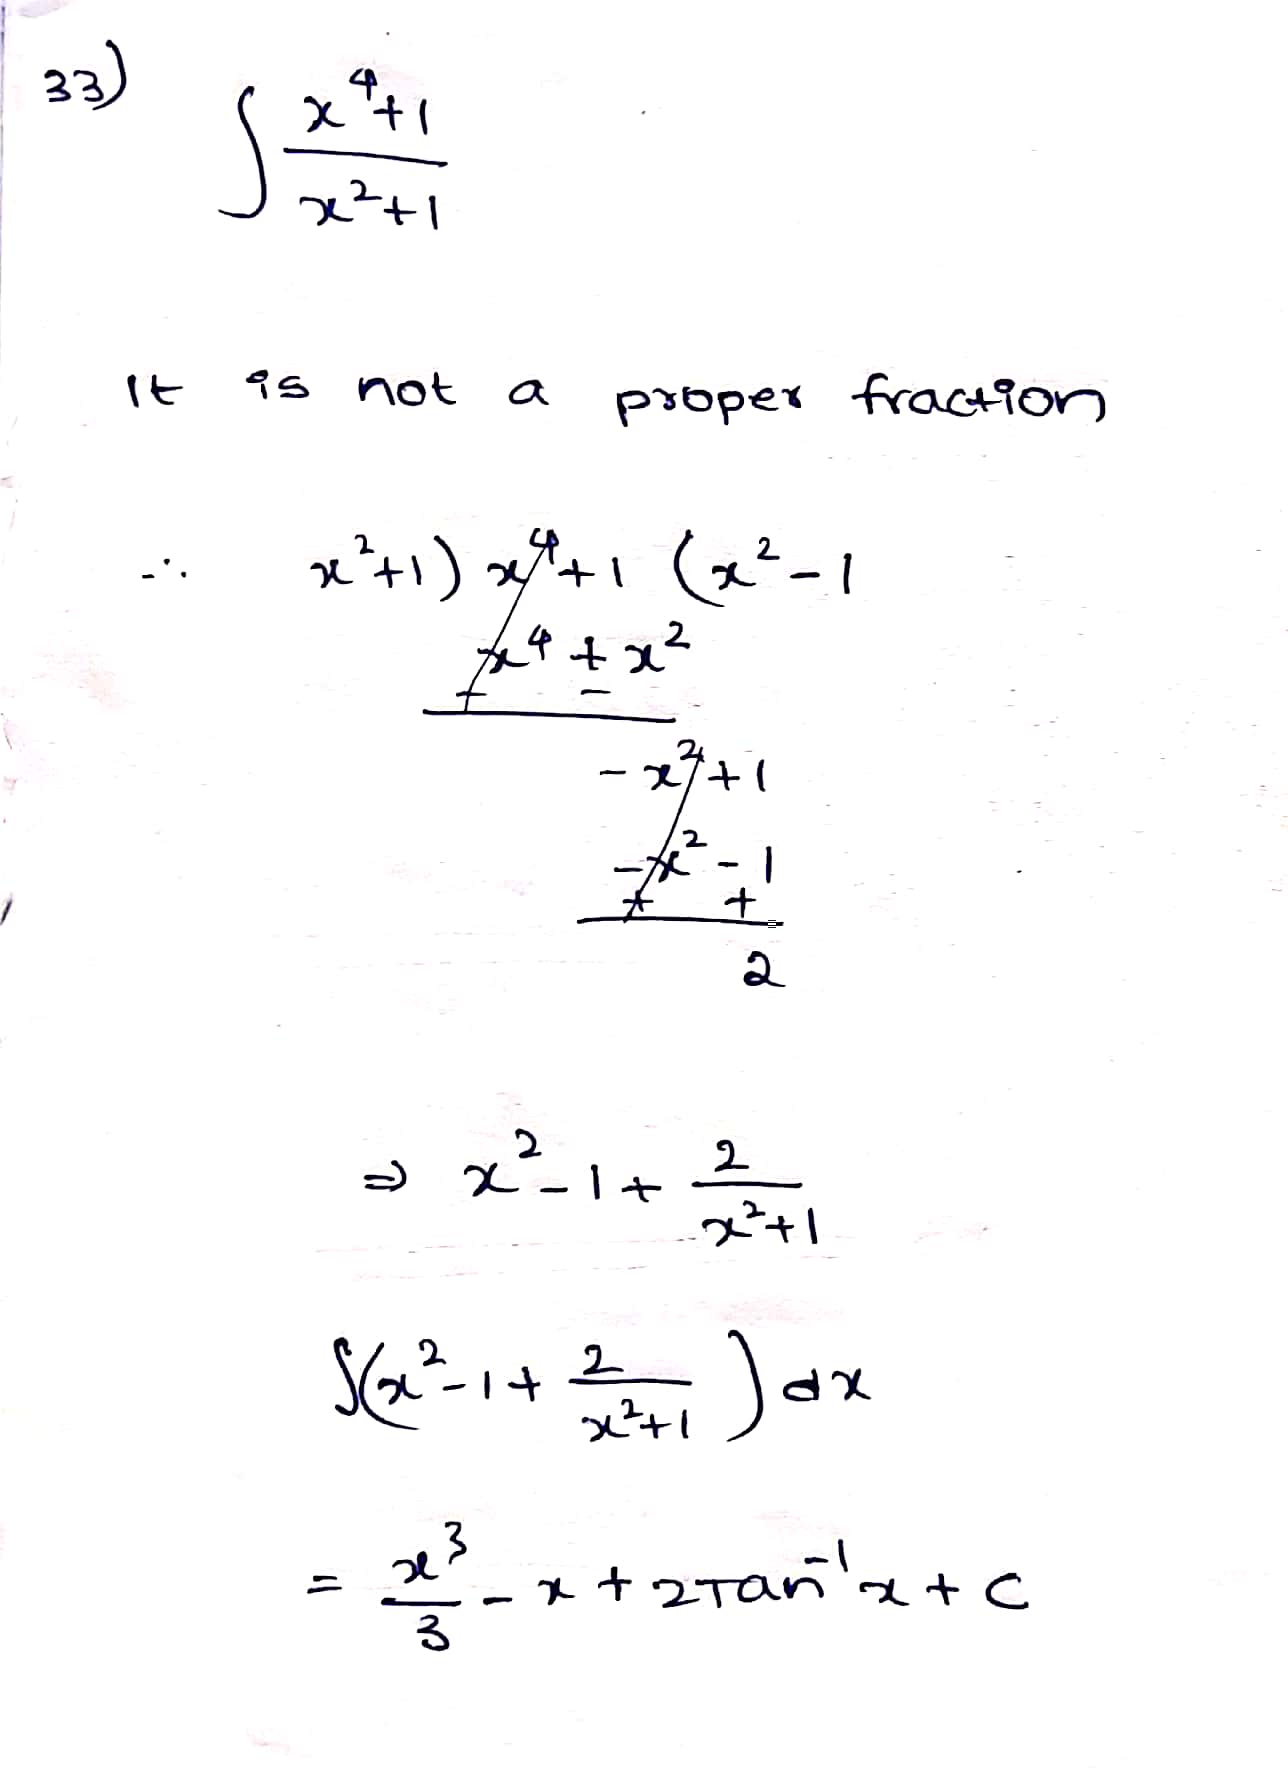 33) ∫ x⁴+1 / x²+1
It is not a proper fraction
∴ x²+1) x⁴+1 (x²-1
x⁴ + x²
+ -
-x²+1
-x²-1
+ +
2
⇒ x²-1+ 2 / x²+1
∫(x²-1+ 2 / x²+1 ) dx
= x³/3 - x + 2Tan⁻¹x + C